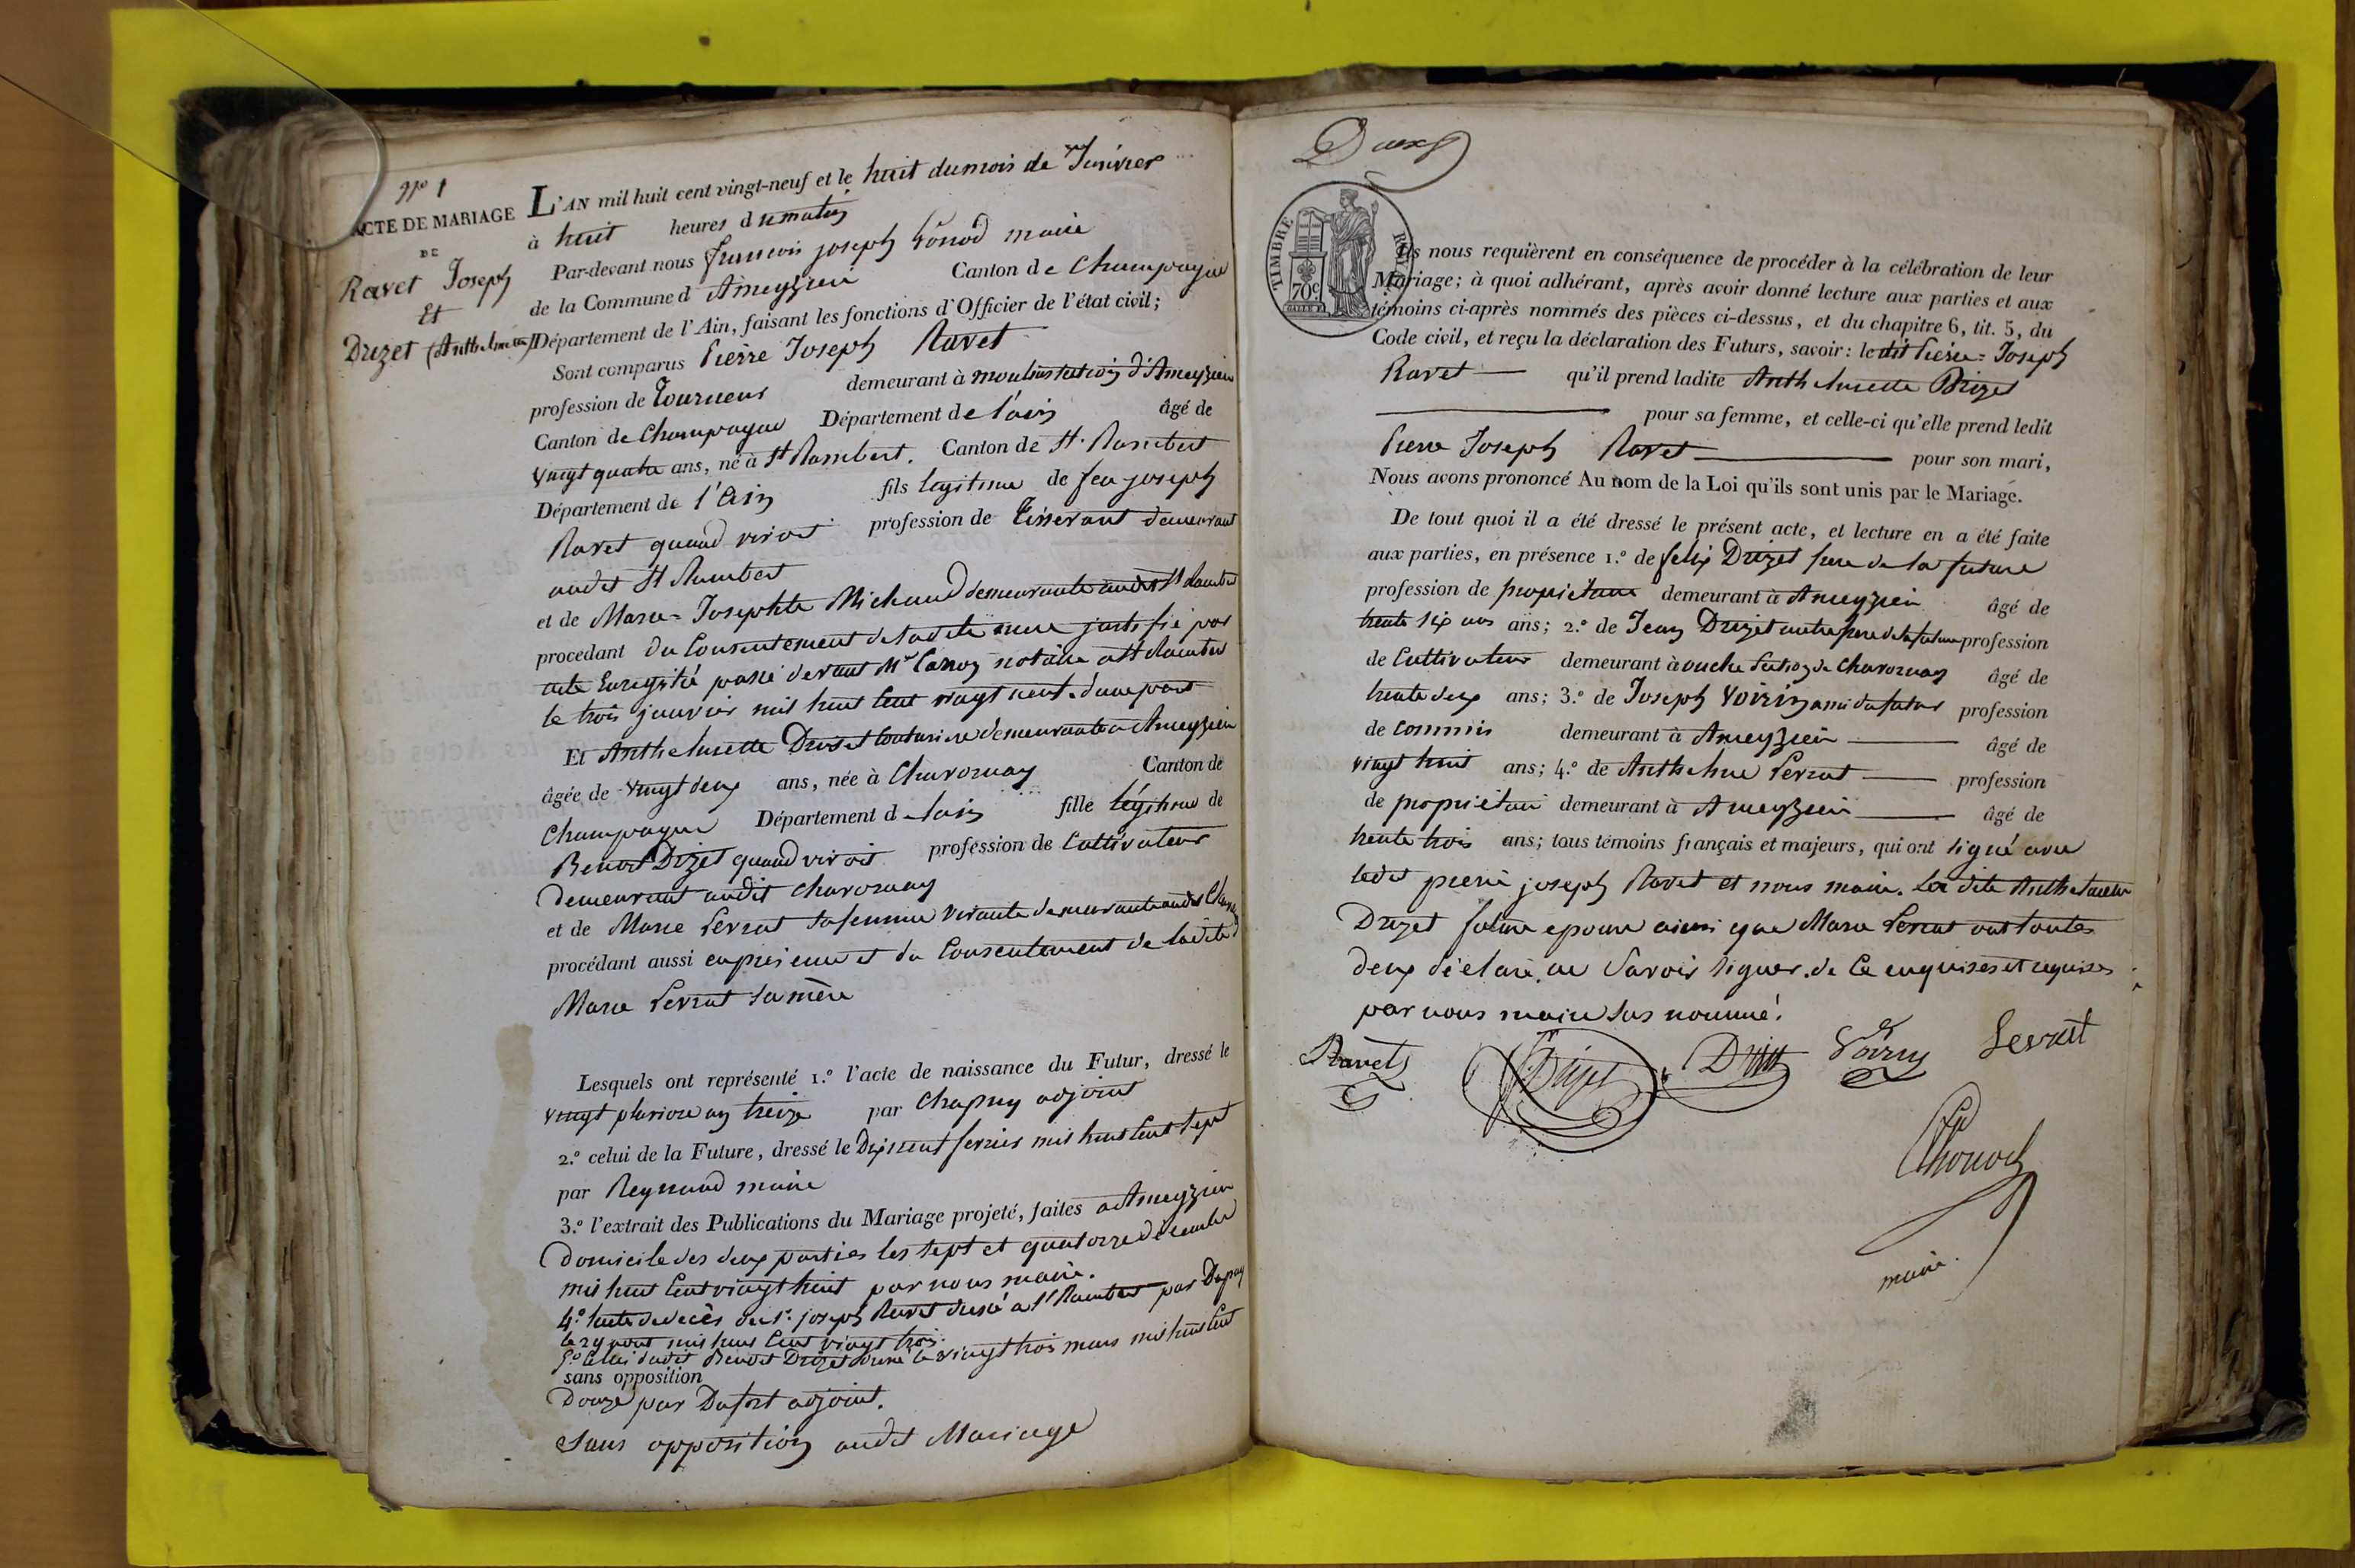 N° 1
ACTE DE MARIAGE
DE
Ravet Joseph
Et
Druzet (Anthelmette)
L'AN mil huit cent vingt-neuf et le huit du mois de Janvier
à huit heures du matin
Par-devant nous françois joseph maire
de la Commune d'Ameyzieu Canton de Champagne
Département de l'Ain, faisant les fonctions d'Officier de l'état civil;
Sont comparus Pierre Joseph Ravet
profession de Tourneur demeurant à moulins section d'Ameyzieu
Canton de Champagne Département de l'ain âgé de
vingt quatre ans, né à St Rambert. Canton de St. Rambert
Département de l'Ain fils legitime de feu joseph
Ravet quand vivoit profession de Tisserant demeurant
audit St Rambert
et de Marie-Josephte Michaud demeurante audit St Rambert
procedant du Consentement de ladite mere justifié par
acte Enregistré passé devant Mr notaire a St Rambert
le trois janvier mil huit Cent vingt neuf. d'une part
Et Anthelmette Druzet Couturiere demeurante a Ameyzieu
âgée de vingt deux ans, née à Chavornay Canton de
Champagne Département de lain fille légitime de
Benoit Druzet quand vivoit profession de Cultivateur
Demeurant audit Chavornay
et de Marie Serrat sa femme vivante demeurante audit
procédant aussi en presence et du Consentement de ladite
Marie Serrat sa mère
Lesquels ont représenté 1.° l'acte de naissance du Futur, dressé le
vingt pluviose an treize par Chapuy adjoint
2.° celui de la Future, dressé le Dix neuf fevrier mil huit Cent sept
par Reynaud maire
3.° l'extrait des Publications du Mariage projeté, faites a Ameyzieu
Domicile des deux parties les sept et quatorze décembre
mil huit Cent vingt huit par nous maire.
4.° lacte de decès du Sr. joseph Ravet dressé a St Rambert par Dupuy
le 29 aout mil huit Cent vingt trois.
5.° Celui dudit Benoit Druzet le vingt trois mars mil huit Cent
sans opposition
Douze par Dufort adjoint.
Sans opposition audit Mariage
Deux
TIMBRE ROYAL
70c
Ils nous requièrent en conséquence de procéder à la célébration de leur
Mariage; à quoi adhérant, après avoir donné lecture aux parties et aux
témoins ci-après nommés des pièces ci-dessus, et du chapitre 6, tit. 5, du
Code civil, et reçu la déclaration des Futurs, savoir: le dit Pierre-Joseph
Ravet qu'il prend ladite Anthelmette Druzet
pour sa femme, et celle-ci qu'elle prend ledit
Pierre Joseph Ravet pour son mari,
Nous avons prononcé Au nom de la Loi qu'ils sont unis par le Mariage.
De tout quoi il a été dressé le présent acte, et lecture en a été faite
aux parties, en présence 1.° de felix Druzet frere de la future
profession de propriétaire demeurant à Ameyzieu âgé de
trente six ans ans; 2.° de Jean Druzet autre frere de la future profession
de Cultivateur demeurant à ouche Section de Chavornay âgé de
trente deux ans; 3.° de Joseph Voirin ami du futur profession
de Commis demeurant à Ameyzieu âgé de
vingt huit ans; 4.° de Anthelme Serrat profession
de propriétaire demeurant à Ameyzieu âgé de
trente trois ans; tous témoins français et majeurs, qui ont signé avec
ledit pierre joseph Ravet et nous maire. La dite Anthelmette
Druzet future epouse ainsi que Marie Serrat ont toutes
deux déclaré ne Savoir signer. de Ce enquises et requises
par nous maire sus nommé.
Ravet Druzet Druzet Voirin Serrat
maire.